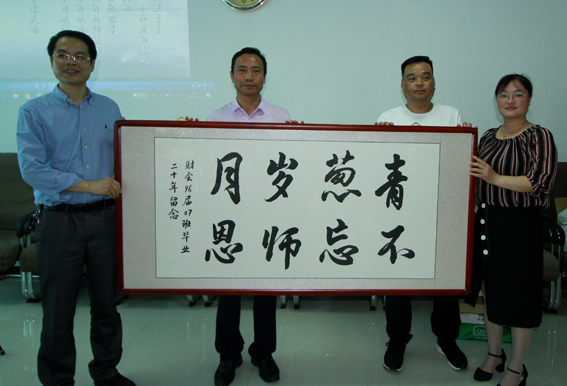 青葱岁月
不忘师恩
财会96届07班毕业
二十年留念